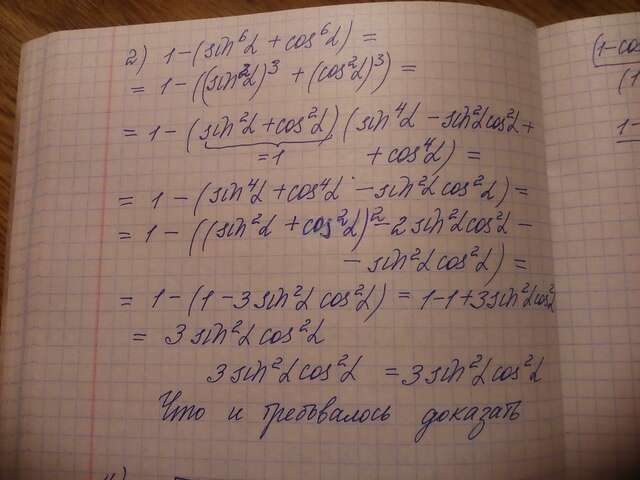 2) 1-(sin⁶α + cos⁶α) =
= 1-((sin²α)³ + (cos²α)³) =
= 1-(sin²α+cos²α)(sin⁴α - sin²αcos²α+
=1 + cos⁴α) =
= 1-(sin⁴α+cos⁴α - sin²αcos²α) =
= 1-((sin²α + cos²α)²-2sin²αcos²α -
- sin²αcos²α) =
= 1-(1-3sin²αcos²α) = 1-1+3sin²αcos²α
= 3sin²αcos²α
3sin²αcos²α = 3sin²αcos²α
Что и требовалось доказать
(1-cos
(1
1-